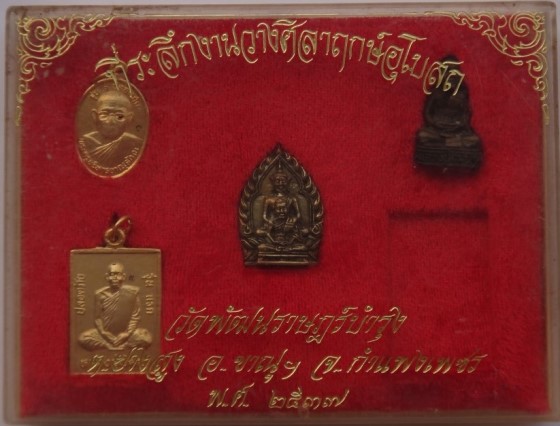 ที่ระลึกงานวางศิลาฤกษ์อุโบสถ
วัดพัฒนราษฎร์บำรุง
อ.ขาณุฯ จ.กำแพงเพชร
พ.ศ. ๒๕๓๗